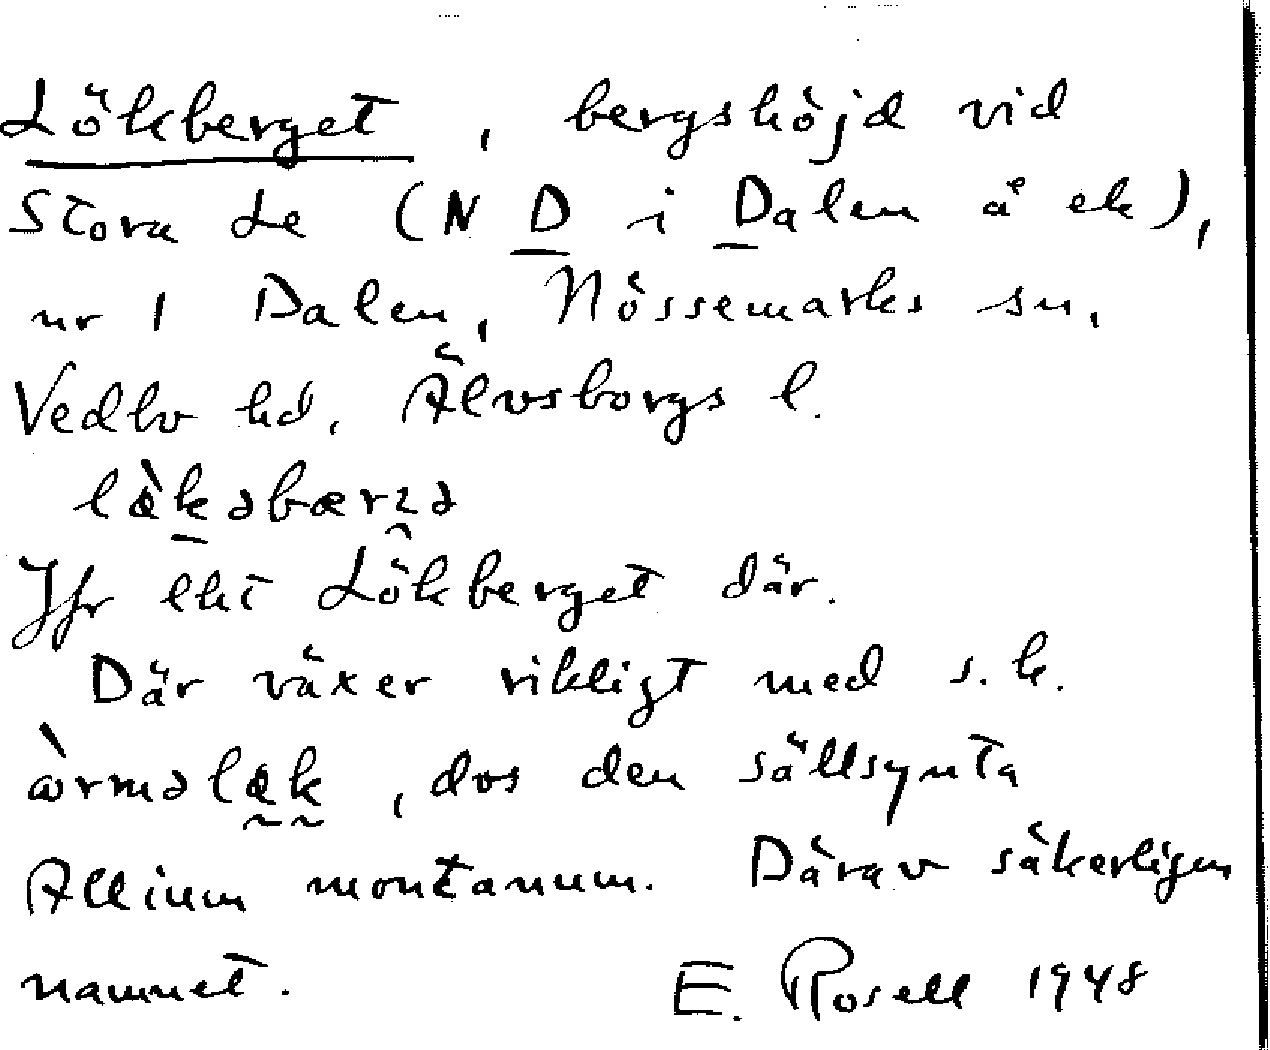 Lökberget, bergshöjd vid
Stora Le (N D i Dalen å ek),
nr 1 Dalen, Nössemarks sn,
Vedbo hd, Älvsborgs l.
Jfr ekt Lökberget där.
Där växer rikligt med s.k.
, dvs den sällsynta
Allium montanum. Därav säkerligen
namnet. E. Rosell 1948